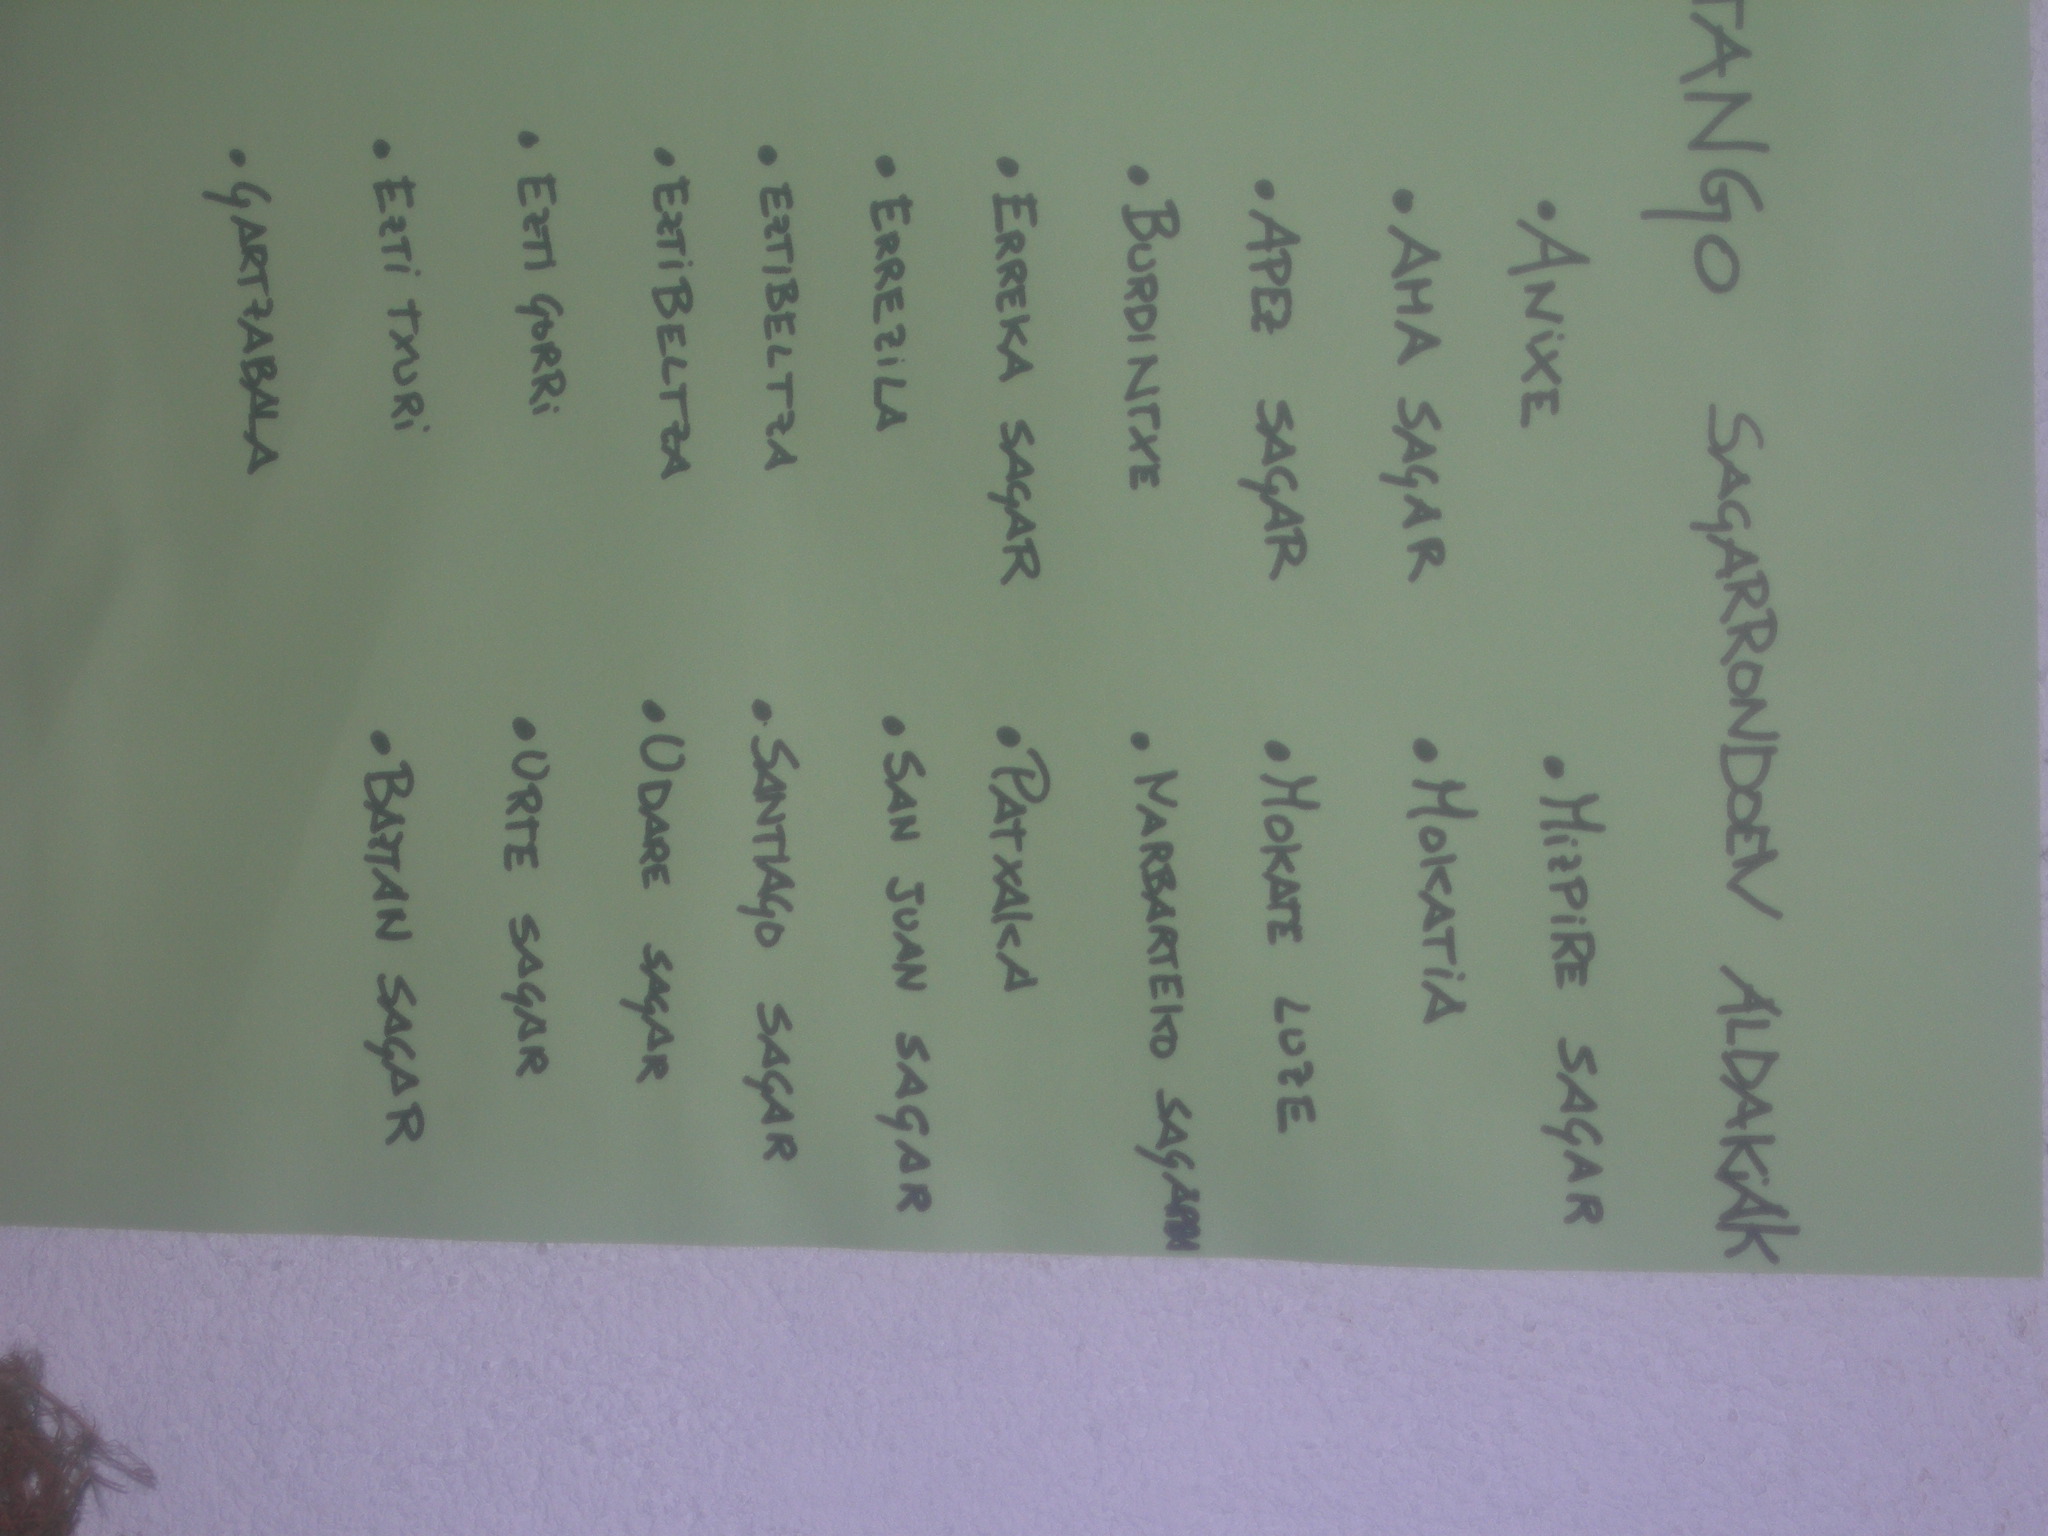 TANGO SAGARRONDOEN ALDAKAK
• ANIXE
• AMA SAGAR
• APEZ SAGAR
• BURDINTXE
• ERREKA SAGAR
• ERREZILA
• EZTIBELTZA
• EZTIBELTZA
• EZTI GORRI
• EZTI TXURI
• GARTZABALA
• MIZPIRE SAGAR
• MOKATIA
• MOKATE LUZE
• NARBARTEKO SAGAR
• PATXAKA
• SAN JUAN SAGAR
• SANTIAGO SAGAR
• UDARE SAGAR
• URTE SAGAR
• BAZTAN SAGAR